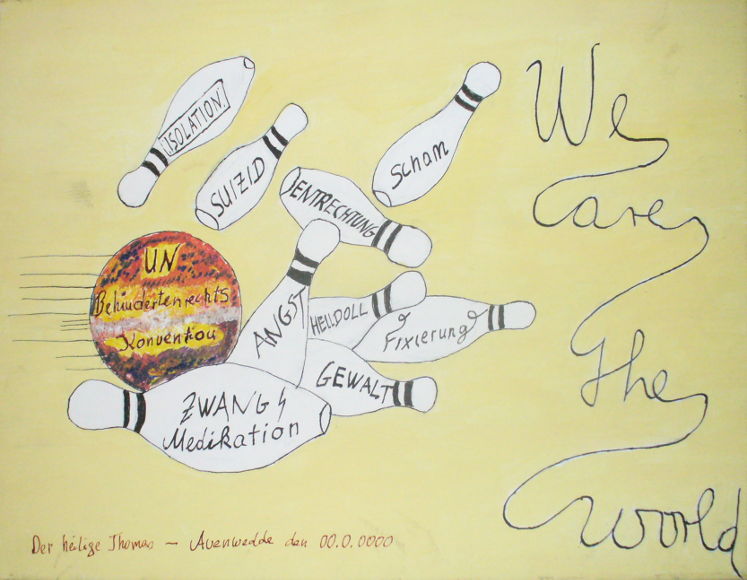 ISOLATION
SUIZID
Scham
ENTRECHTUNG
UN
Behindertenrechts
Konvention
ANGST
HELLDOLL
Fixierung
GEWALT
ZWANGS
Medikation
We
Care
the
world
Der heilige Thomas — Auenwedde den 00.0.0000